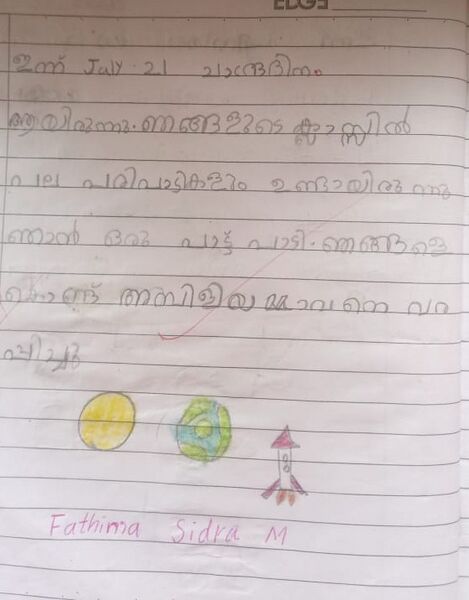 ഇന്ന് July 21 ചാന്ദ്രദിനം
ആയിരുന്നു. ഞങ്ങളുടെ ക്ലാസ്സിൽ
പല പരിപാട്ടികളും ഉണ്ടായിരുന്നു
ഞാൻ ഒരു പാട്ട് പാടി. ഞങ്ങളെ
കൊണ്ട് അമ്പിളിയമ്മാവനെ വര
പ്പിച്ചു
Fathima Sidra M